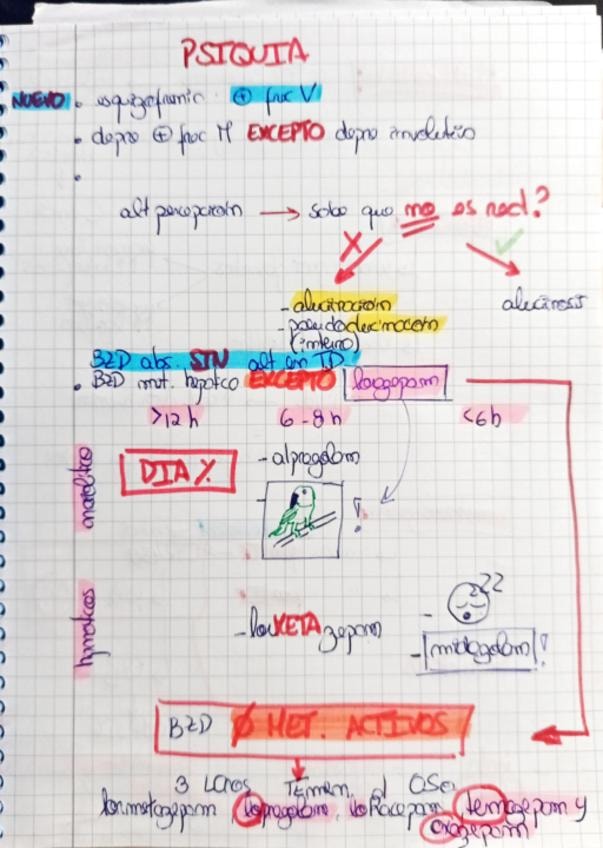 PSIQUIA
NUEVO • esquizofrenia ⊕ frec V
• depre ⊕ frec M EXCEPTO depre involutiva
•
alt percepción → sabe que no es real?
- alucinación
alucinosis
- pseudoalucinación
(interno)
BZD abs. SIN alt en TD
• BZD met. hepático EXCEPTO lorazepam
>12 h 6-8 h <6h
ansiolítico
DIA %
- alprazolam
-
!
hipnóticos
- lorKETAzepam
- zzz
- midazolam !
BZD Ø MET. ACTIVOS
3 LOROS TEMEN al OSO
lormetazepam, loprazolam, loRacepam, temazepam y
oxazepam